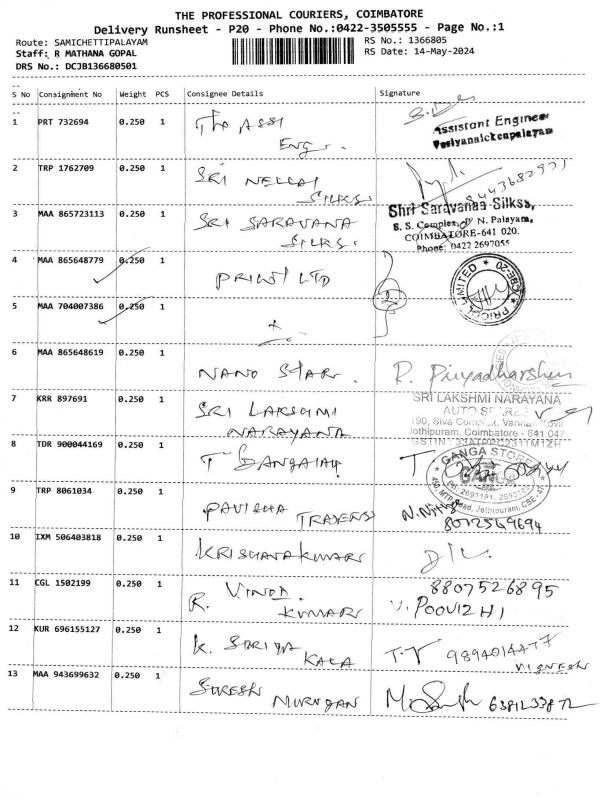 THE PROFESSIONAL COURIERS, COIMBATORE
Delivery Runsheet - P20 - Phone No.:0422-3505555 - Page No.:1
Route: SAMICHETTIPALAYAM
RS No.: 1366805
Staff: R MATHANA GOPAL
RS Date: 14-May-2024
DRS No.: DCJB136680501
S No Consignment No Weight PCS Consignee Details Signature
1 PRT 732694 0.250 1 The ASSI
Eng.
Assistant Engineer
Periyanaickenpalayam
2 TRP 1762709 0.250 1 SRI NELLAI
SILKS
9443682975
3 MAA 865723113 0.250 1 SRI SARAVANA
SILKS.
Shri Saravanaa Silkss,
S. S. Complex, N. Palayam,
COIMBATORE-641 020.
Phone: 0422 2697055
4 MAA 865648779 0.250 1 PRICOL LTD
PRICOL LIMITED * CBE-20 *
5 MAA 704007386 0.250 1
6 MAA 865648619 0.250 1 NANO STAR
R. Priyadharshini
7 KRR 897691 0.250 1 SRI LAKSHMI
NARAYANA
SRI LAKSHMI NARAYANA
AUTO
190, Siva Complex,
Jothipuram, Coimbatore - 641 047
8 TDR 900044169 0.250 1 T GANGAIAH
* GANGA STORE *
450, MTP Road, Jothipuram, CBE-47
9 TRP 8061034 0.250 1 PAVITHA
TRADERS
8072569694
10 IXM 506403818 0.250 1 KRISHANAKUMAR
11 CGL 1502199 0.250 1 R. VINOD
KUMAR
8807526895
V. POOVIZHI
12 KUR 696155127 0.250 1 K. SURIYA
KALA
T.T 9894014477
VIGNESH
13 MAA 943699632 0.250 1 SURESH
MURUGAN
6381233872